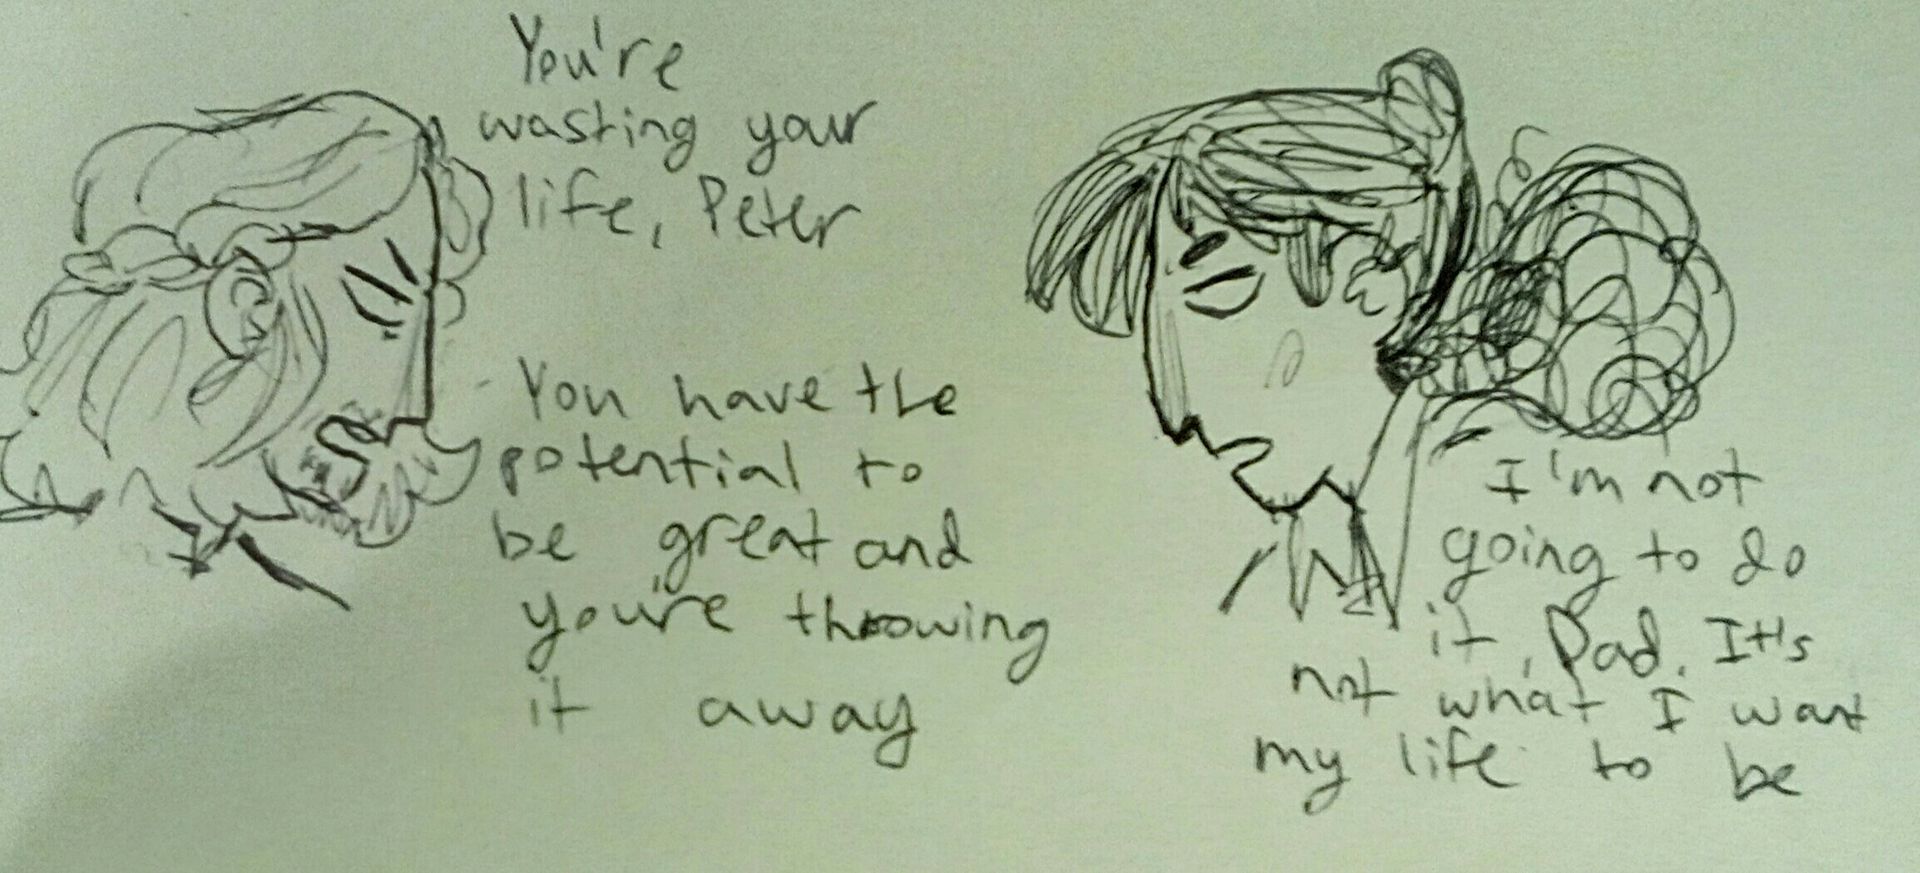 You're
wasting your
life, Peter
You have the
potential to
be great and
you're throwing
it away
I'm not
going to do
it, Dad. It's
not what I want
my life to be